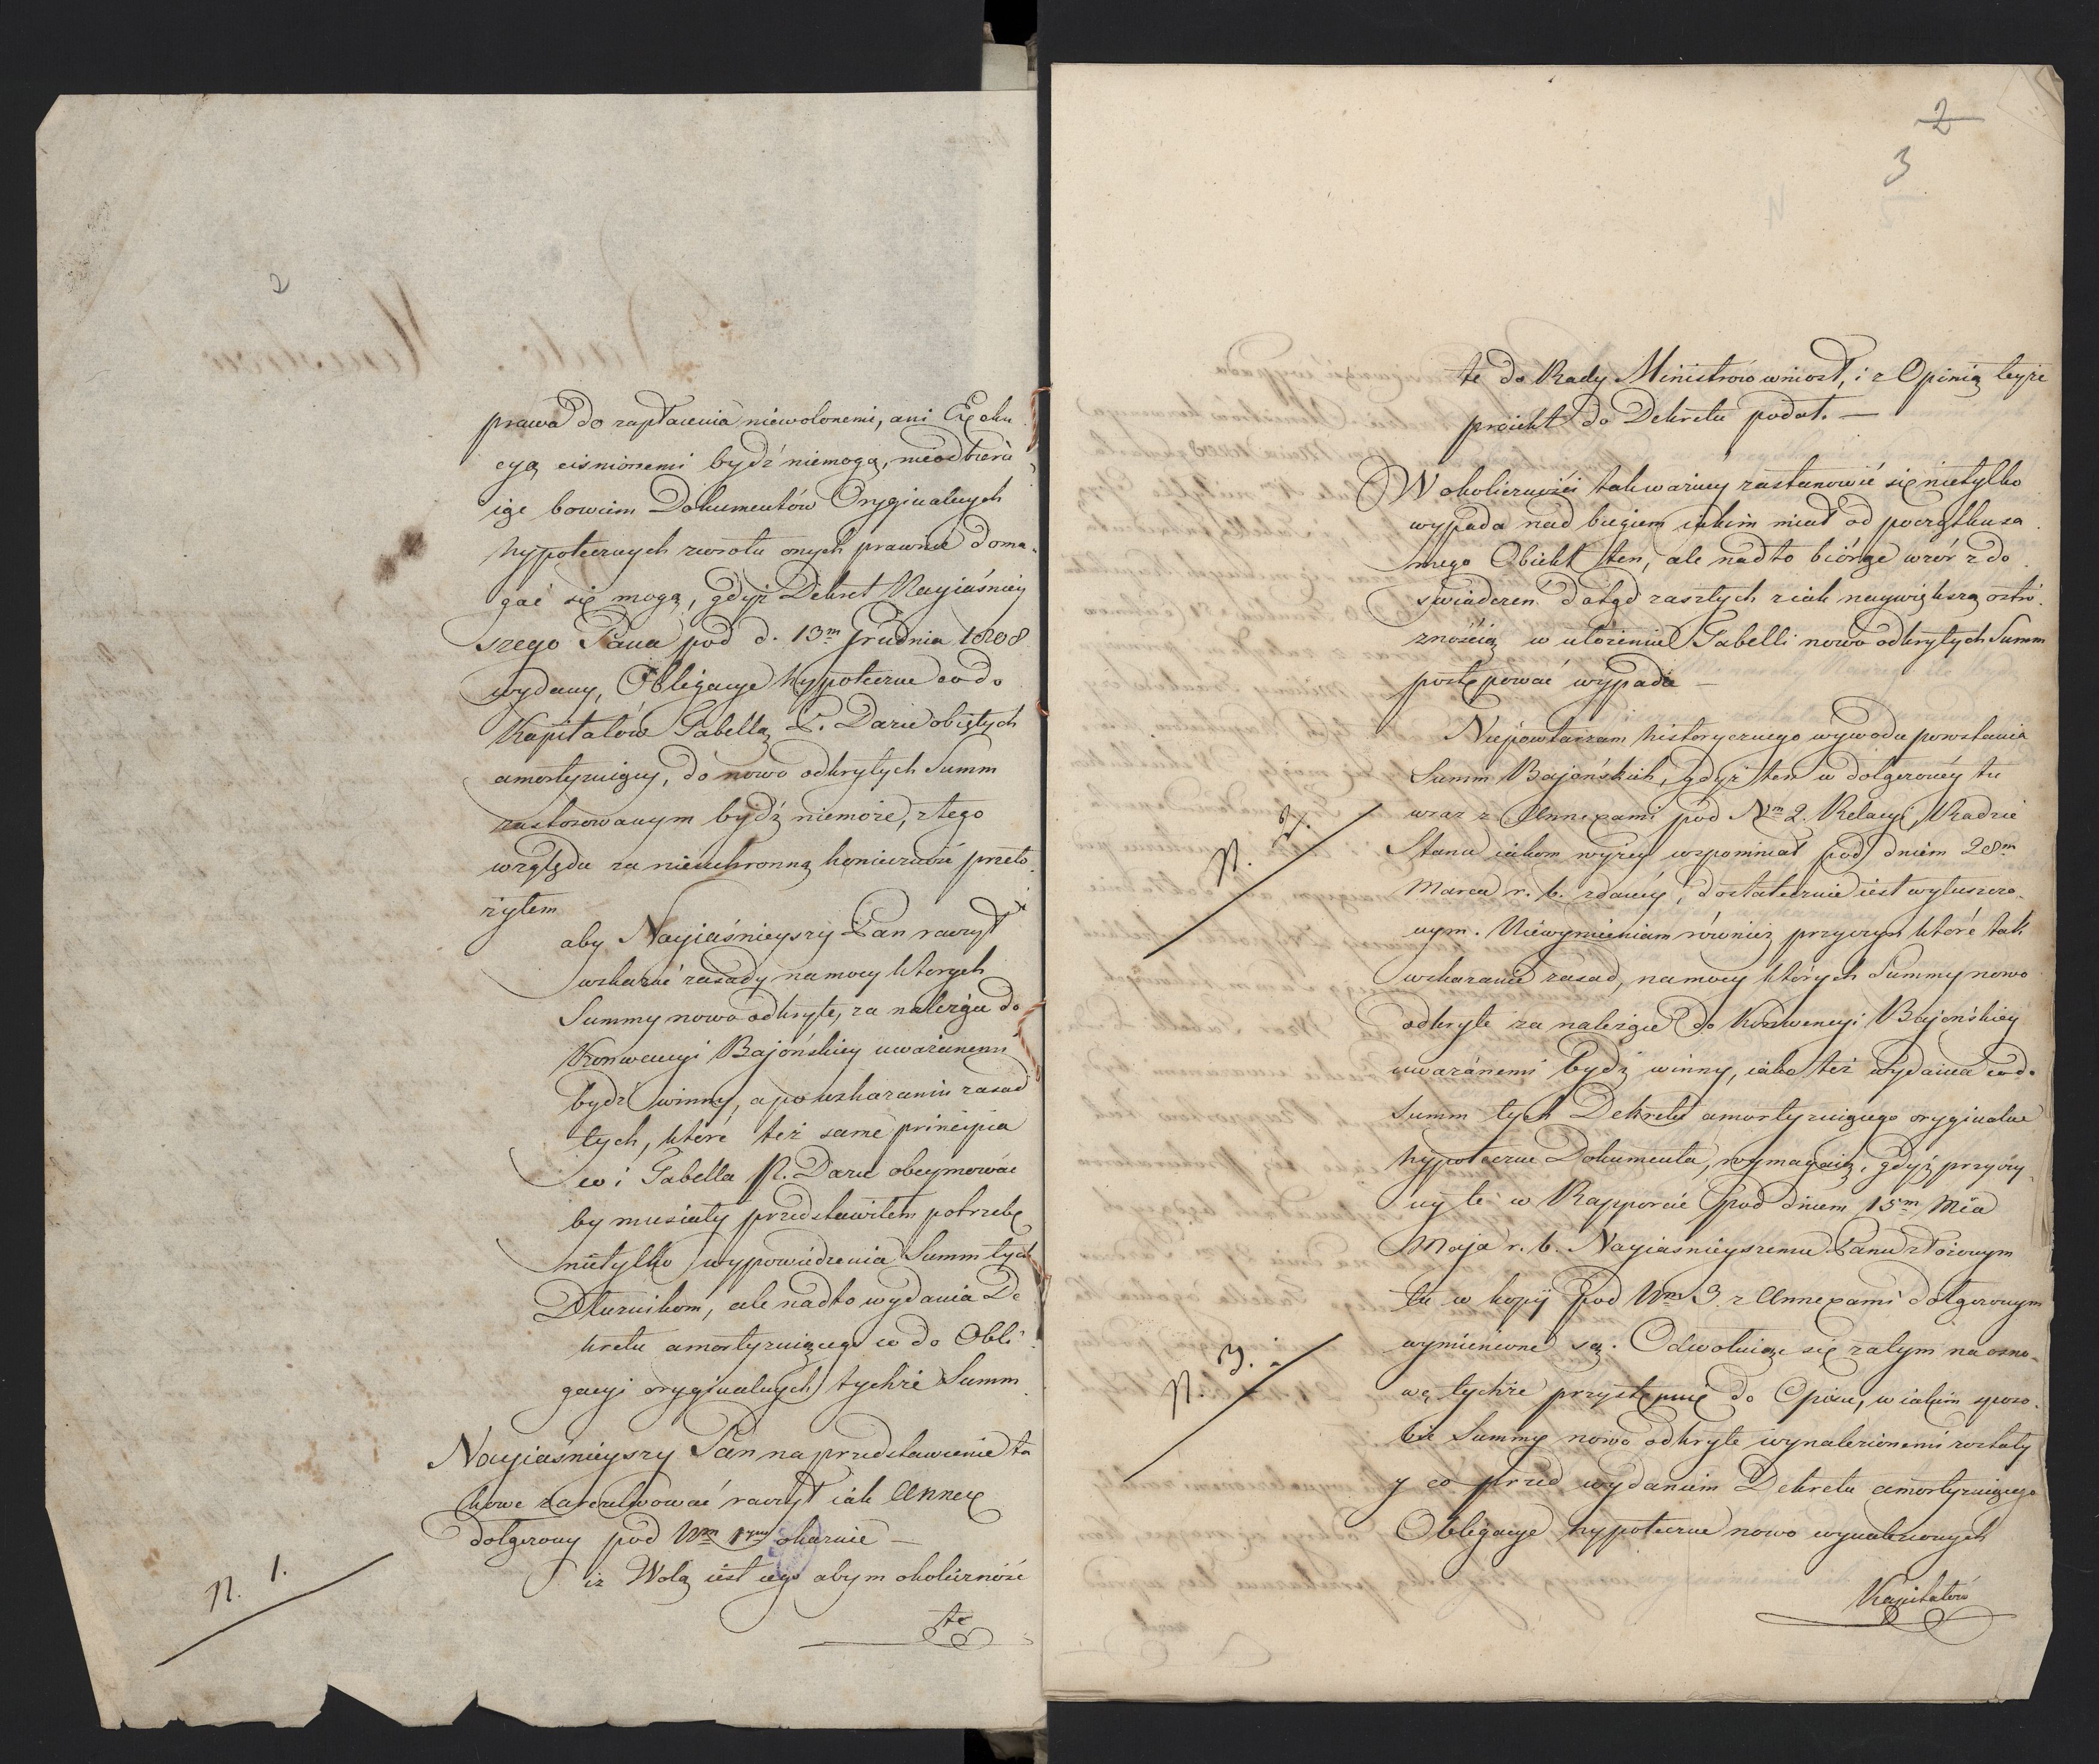 2
prawa do zapłacenia niewolonemi, ani Exeku
cyą ciśnionemi bydź niemogą, nieodbiera
iąc bowiem Dokumentów Oryginalnych
hypotecznych zwrotu onych prawnie doma-
gać się mogą, gdyż Dekret Nayiaśniey
szego Pana pod d. 13m Grudnia 1808
wydany, Obligacye hypoteczne co do
Kapitałów Tabellą P. Daru obiętych
amortyzuiący, do nowo odkrytych Summ
zastosowanym bydź niemoże, z tego
względu za nieuchronną konieczność przeło
żyłem
aby Nayiaśnieyszy Pan raczył
wskazać zasady na mocy których
Summy nowo odkryte, za należące do
Konwencyi Bajońskiey uważanemi
bydź winny, a po wskazaniu zasad
tych, które też same principia
co i Tabella P. Daru obeymować
by musiały przedstawiłem potrzebę
nietylko wypowiedzenia Summ tych
Dłużnikom, ale nadto wydania De
kretu amortyzuiącego co do Obli
gacyi oryginalnych tychże Summ
Nayiaśnieyszy Pan na przedstawienie ta
kowe zarezolwować raczył iak Annex
dołączony pod Nm 1ym okazuie —
iż Wolą iest iego abym okoliczność
N. 1.
te
2
3
te do Rady Ministrów wniosł, i z Opinią teyże
proiekt do Dekretu podał. —
W okoliczności tak ważney zastanowić się nietylko
wypada nad biegiem iakim miał od początku sa
mego Obiekt ten, ale nadto biórąc wzór z do
świadczeń dotąd zaszłych z iak naywiększą ostro
żnością w ułożeniu Tabelli nowo odkrytych Summ
postępować wypada —
Niepowtarzam historycznego wywodu powstania
Summ Bajońskich, gdyż ten w dołączoney tu
wraz z Annexami pod Nm 2. Relacyi, Radzie
Stanu iakom wyżey wspominał pod dniem 28m
Marca r. b. zdaney, dostatecznie iest wyłuszczo-
nym. Niewymieniam również przyczyn które tak
wskazanie zasad, na mocy których Summy nowo
odkryte za należące do Konwencyi Bajońskiey
uważanemi bydź winny, iako też wydania co do
Summ tych Dekretu amortyzuiącego oryginalne
hypoteczne Dokumenta, wymagaią, gdyż przyczy-
ny te w Rapporcie pod dniem 15m Mca
Maja r. b. Nayiaśnieyszemu Panu złożonym
tu w kopij pod Nm 3. z Annexami dołączonym
wymienione są. Odwołuiąc się zatym na osno-
wę tychże przystępuię do Opisu, w iakim sposo-
bie Summy nowo odkryte wynalezionemi zostały
y co przed wydaniem Dekretu amortyzuiącego
Obligacye hypoteczne nowo wynalezionych
N. 2.
N. 3.
Kapitałów